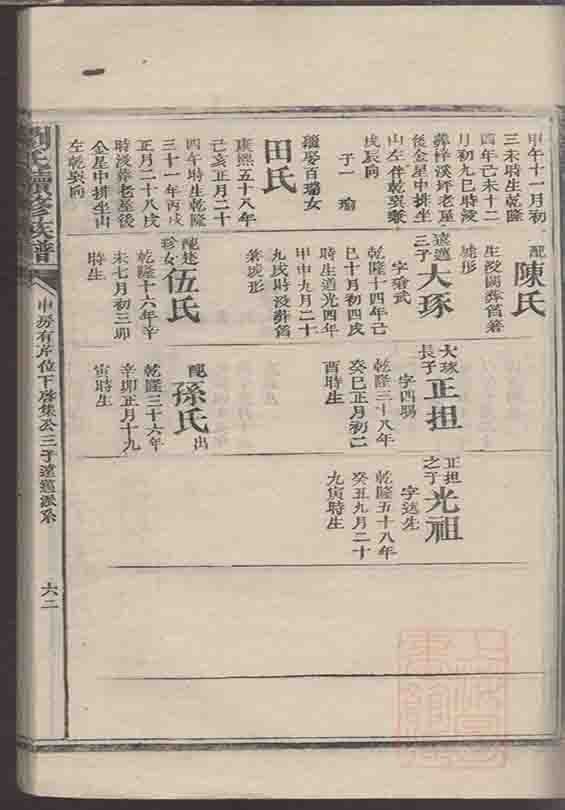 甲午十一月初
三未時生乾隆
酉年己未十二
月初九巳時歿
葬梓溪坪老屋
後金星中排坐
山左伴乾巽兼
戌辰向
子一 瑜
續娶百瑞女
田氏
康熙五十八年
己亥正月二十
四午時生乾隆
三十一年丙戌
正月二十八戌
時歿葬老屋後
金星中排坐山
左乾巽向
配
陳氏
生歿闕葬舊
遠邁
三子
大琢
字瓊武
乾隆十四年己
巳十月初四戌
時生道光四年
甲申九月二十
九戌時歿葬舊
配述
珍女
伍氏
乾隆十六年辛
未七月初三卯
時生
大琢
長子
正担
字四賜
乾隆三十八年
癸巳正月初二
酉時生
配 出
孫氏
乾隆三十六年
辛卯正月十九
寅時生
正担
之子
光祖
字述先
乾隆五十八年
癸丑九月二十
九寅時生
劉氏續修族譜
申房有芹位下啓集公三子遠邁派系
六二